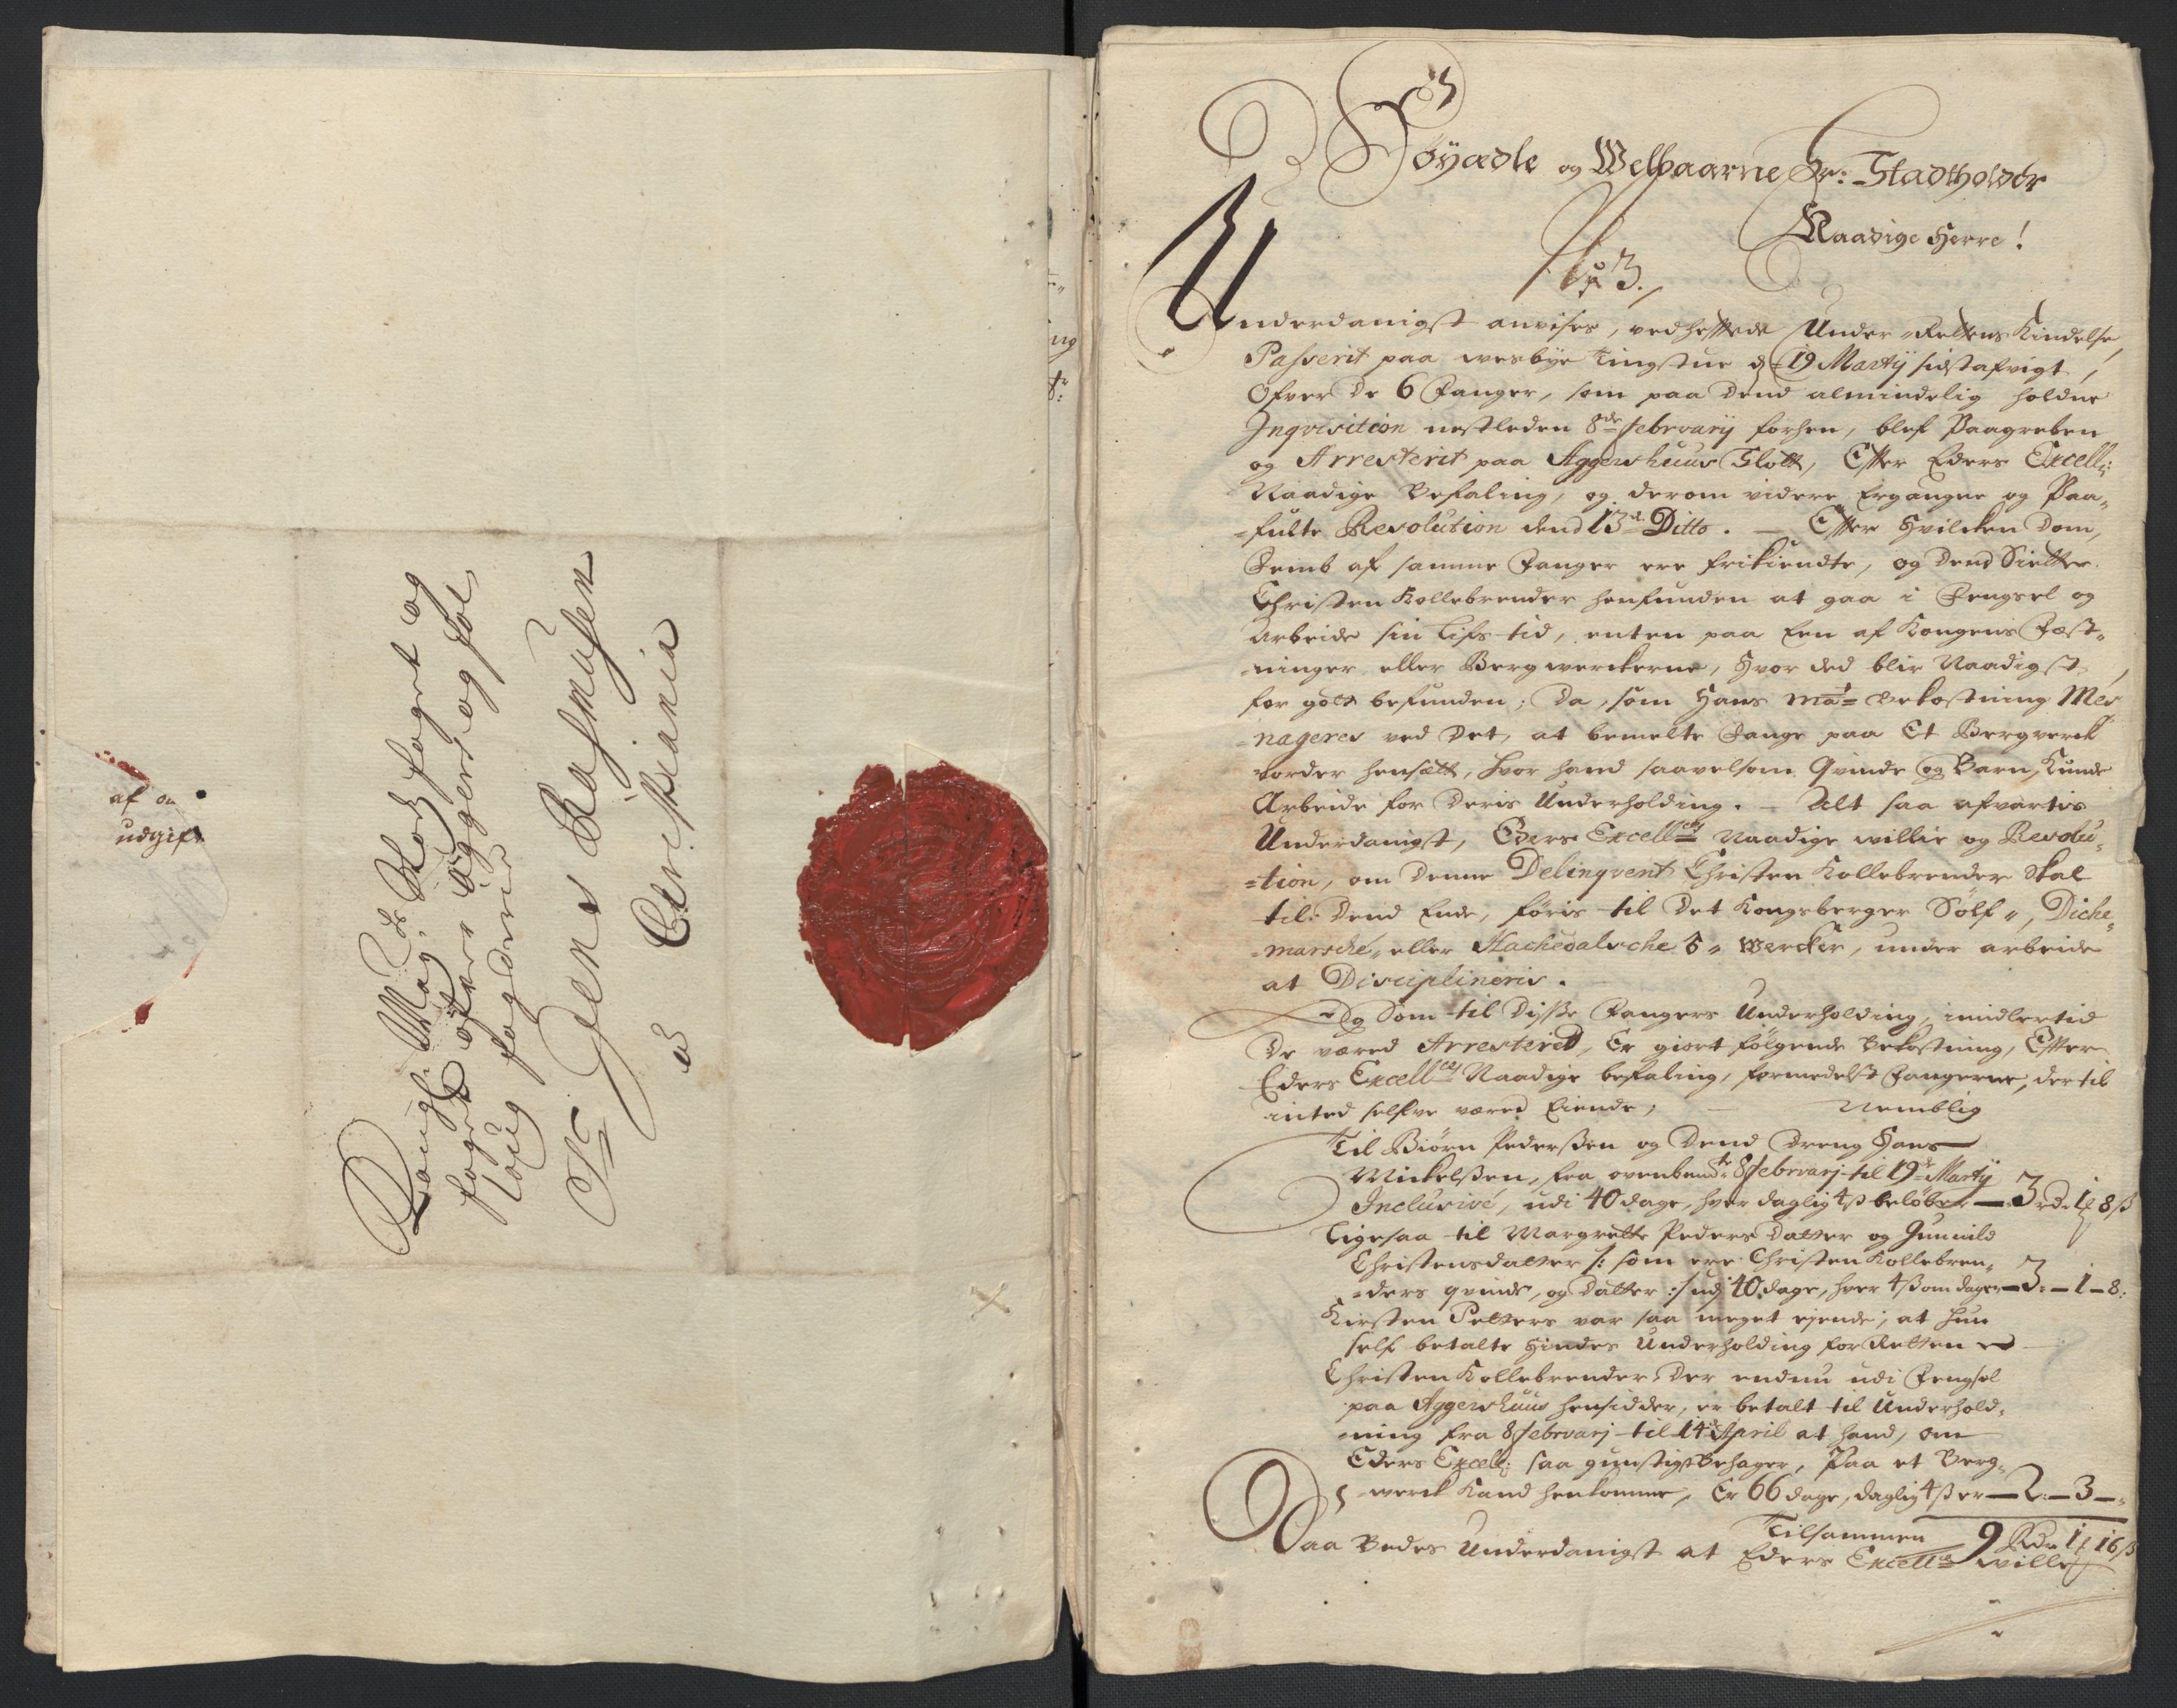 af on
udgift
Kongl: May: Slodsfoget og
foget ofver Aggers og fol
loug fogderie
Sr Jens Rasmusen
a Cristiania
Høyædle og Welbaarne Hr: Stadtholder
Naadige Herre!
No 3.
Underdanigst anvises, vedheftede Under-Rettens Kindelse,
Passerit paa wesbye tingstue d. 19 Martij sidstafvigt,
Ofver de 6 Fanger, som paa dend almindelig holdne
Inqvisition nestleden 8de februarij forhen, blef Paagreben
og Arresterit paa Aggershuus Slott, Efter Eders Excell:
Naadige Befaling, og derom videre Ergangne og Paa-
-fulte Resolution dend 13de Ditto. - Efter Hvilcken dom,
Femb af samme Fanger ere frikiendte, og dend Siette
Christen Kollebrender henfunden at gaa i Fengsel og
Arbeide sin Lifs-tid, enten paa Een af Kongens Fæst-
-ninger eller Bergwerckerne, Hvor ded blir Naadigst
for got befunden; Da, som Hans Mats bekostning Mes
-nageres ved det, at bemelte Fange paa Et Bergverck
vorder hensætt, hvor hand saavelsom Qvinde og Barn, Kunde
Arbeide for deris Underholding. - Alt saa afvartis
Underdanigst, Eders Excellces Naadige willie og Resolu-
-tion, om denne Delinqvent Christen Kollebrender skal
til dend Ende, føris til det Kongsberger Sølf-, Diche-
-marsche, eller Hachedalsche - Wercker, under arbeide
at Disciplineris.
Og Som til disse Fangers Underholding, imidlertid
de været Arresterit, Er giort følgende bekostning, Efter
Eders Excellces Naadige befaling, formedelst Fangerne, der til
inted selfve været Eiende, Nemblig
Til Biørn Pederssen og Dend Dreng Hans
Mickelssen, fra ovenbemte 8 februarj til 19de Martij
Inclusivé, udi 40 dage, hver daglig 4 s beløber — 3 rdr 1 8 s
Ligesaa til Margrette Peders Datter og Gunnild
Christensdatter /: som ere Christen Kollebren-
-ders qvinde, og Datter :/ udj 40 dage, hver 4 s om dagen — 3: — 1 — 8:
Kirsten Petters var saa meget ejende, at hun
self betalte Hindes Underholding for Retten
Christen Kollebrender, der endnu udi Fengsel
paa Aggershuus hensidder, er betalt til Underhold-
-ning fra 8 februarj til 14 April at hand, om
Eders Excell: saa gunstigst behager, Paa et Berg-
-werck Kand henkomme, Er 66 dage, daglig 4 s er — 2: — 3 —
Tilsammen 9 Rdr 1 16 s
Saa Bedes Underdanigst at Eders Excellces wille